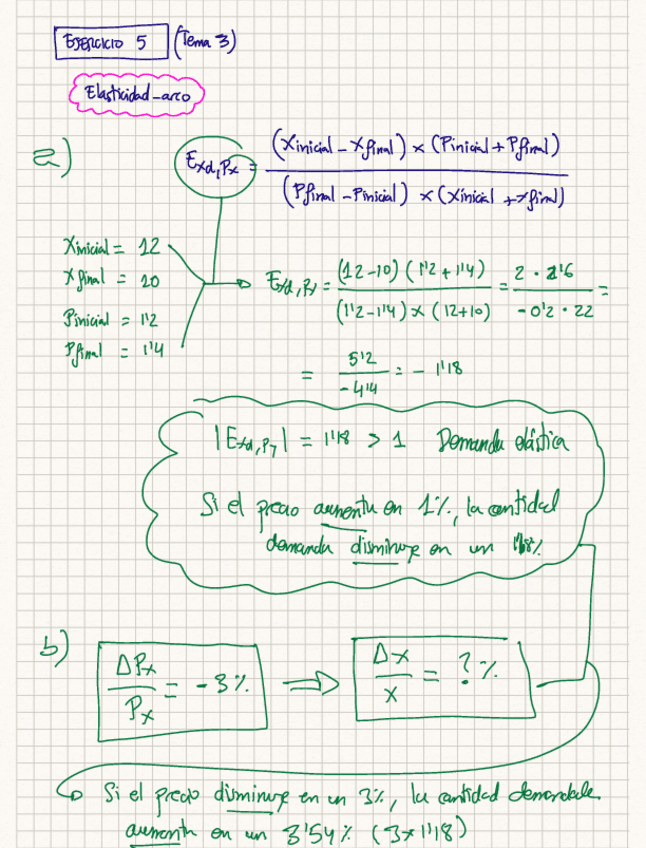 EJERCICIO 5 (Tema 3)
Elasticidad-arco
a) Exd,Px = (Xinicial - Xfinal) × (Pinicial + Pfinal)
(Pfinal - Pinicial) × (Xinicial + Xfinal)
Xinicial = 12
Xfinal = 10
Pinicial = 1'2
Pfinal = 1'4
Exd,Px = (12-10) (1'2 + 1'4) = 2 · 2'6
(1'2 - 1'4) × (12+10) -0'2 · 22 =
= 5'2 = - 1'18
-4'4
|Exd,Px| = 1'18 > 1 Demanda elástica
Si el precio aumenta en 1%, la cantidad
demanda disminuye en un 1'18%
b) ΔPx = -3% ⇒ Δx = ? %
Px x
Si el precio disminuye en un 3%, la cantidad demandada
aumenta en un 3'54% (3×1'18)